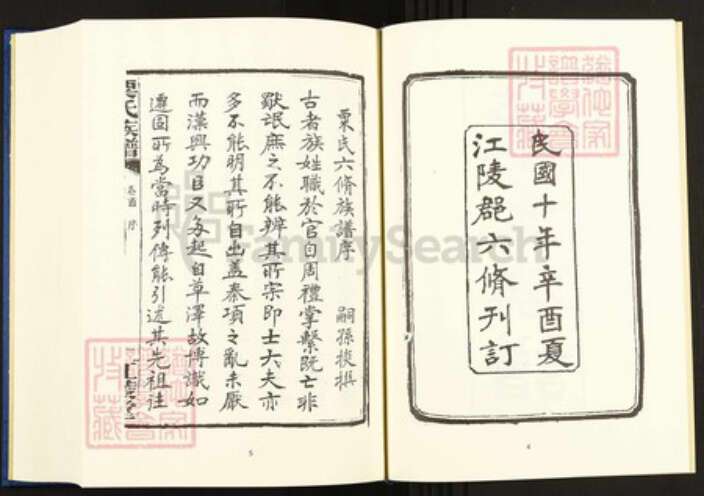 民國十年辛酉夏
江陵郡六脩刊訂
4
栗氏六脩族譜序
嗣孫 撰
古者族姓職於官自周禮掌繫既亡非
歟氓庶之不能辨其所宗即士大夫亦
多不能明其所自出蓋秦項之亂未厭
而漢興功臣又多起自草澤故博識如
遷固所為當時列傳能引述其先祖往
栗氏族譜
卷首 序
5
FamilySearch